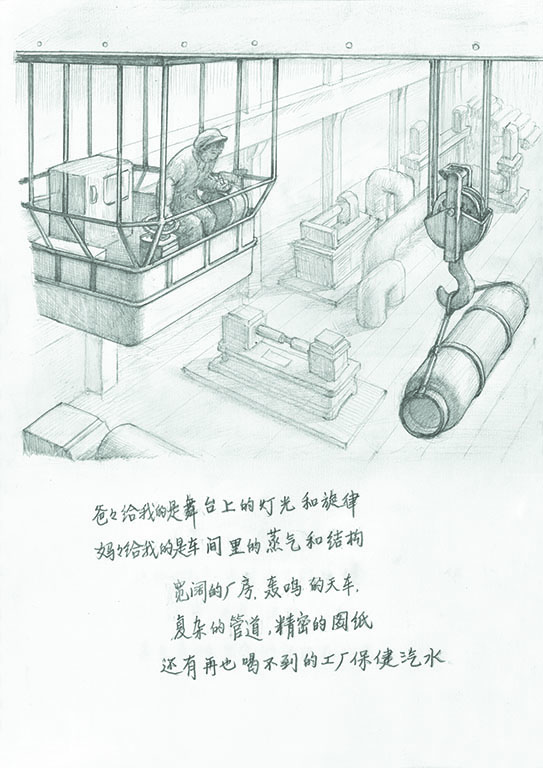 爸々给我的是舞台上的灯光和旋律
妈々给我的是车间里的蒸气和结构
宽阔的厂房，轰鸣的天车，
复杂的管道，精密的图纸
还有再也喝不到的工厂保健汽水